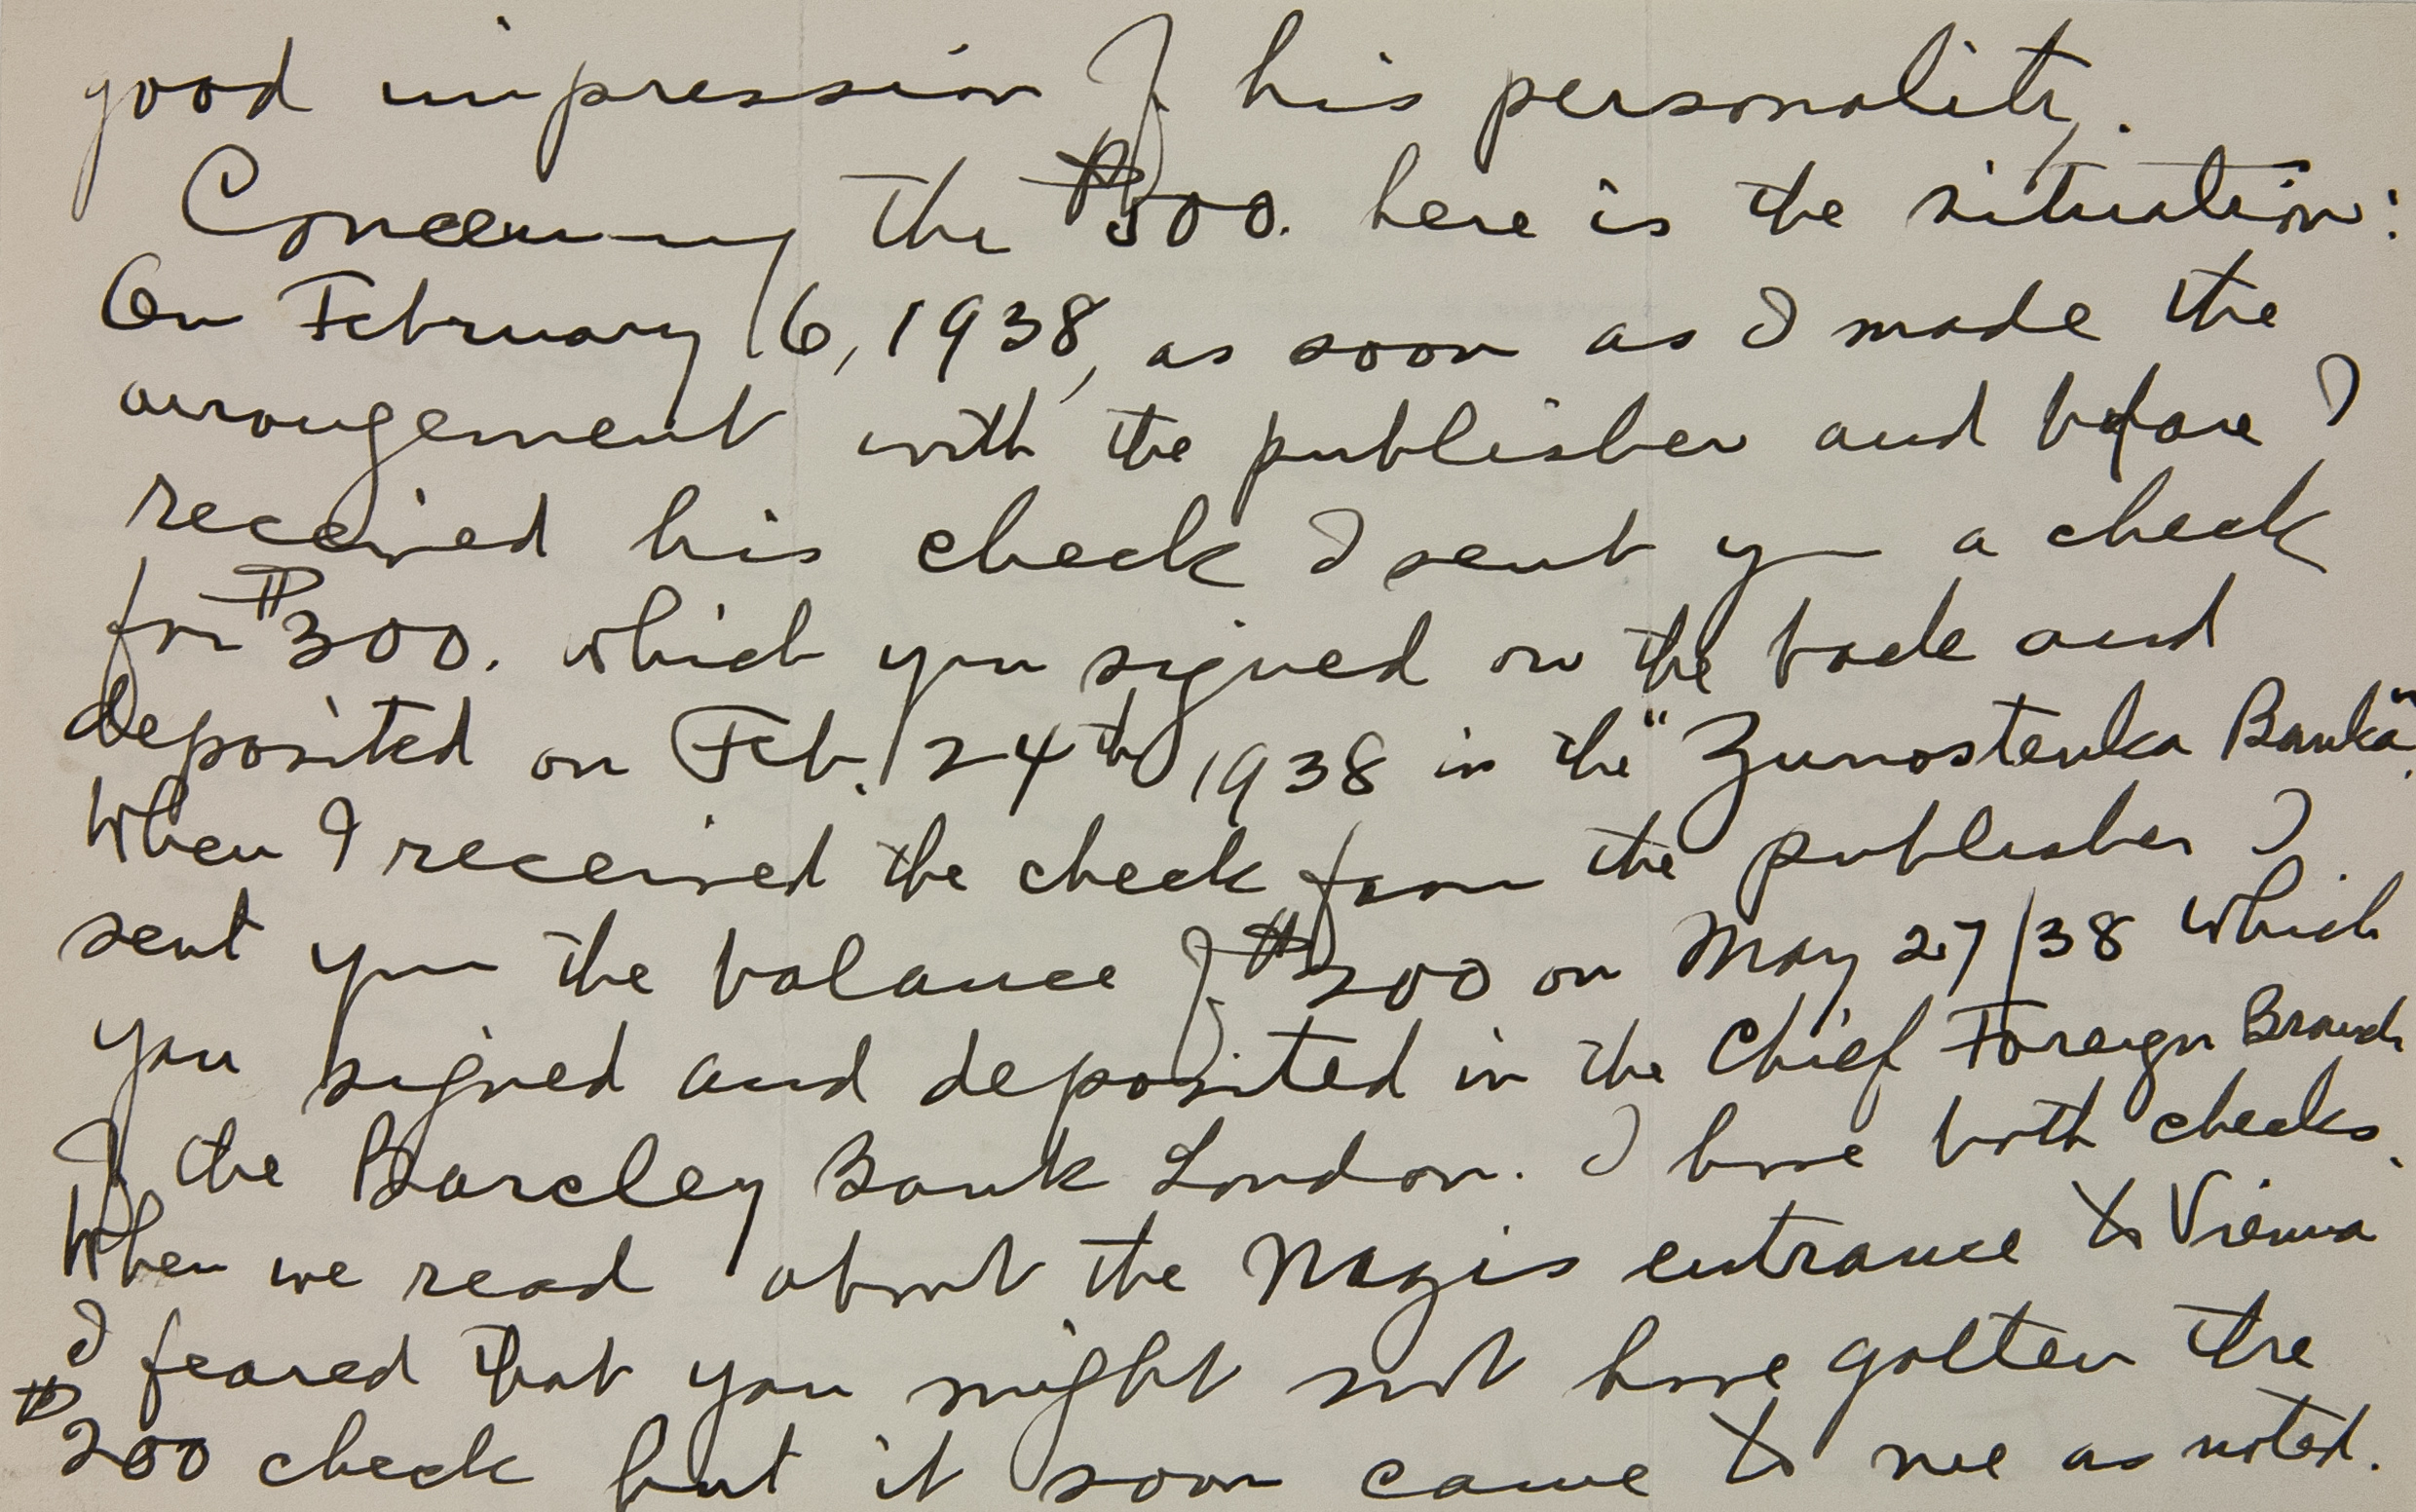 good impression of his personality.
Concerning the $500. here is the situation:
On February 16, 1938, as soon as I made the
arrangement with the publisher and before I
received his check I sent you a check
for $300. which you signed on the back and
deposited on Feb. 24th 1938 in the "Zunostenka Banka".
When I received the check from the publisher I
sent you the balance of $200 on May 27/38 which
you signed and deposited in the Chief Foreign Branch
of the Barcley Bank London. I have both checks.
When we read about the Nazis entrance to Vienna
I feared that you might not have gotten the
$200 check but it soon came to me as noted.